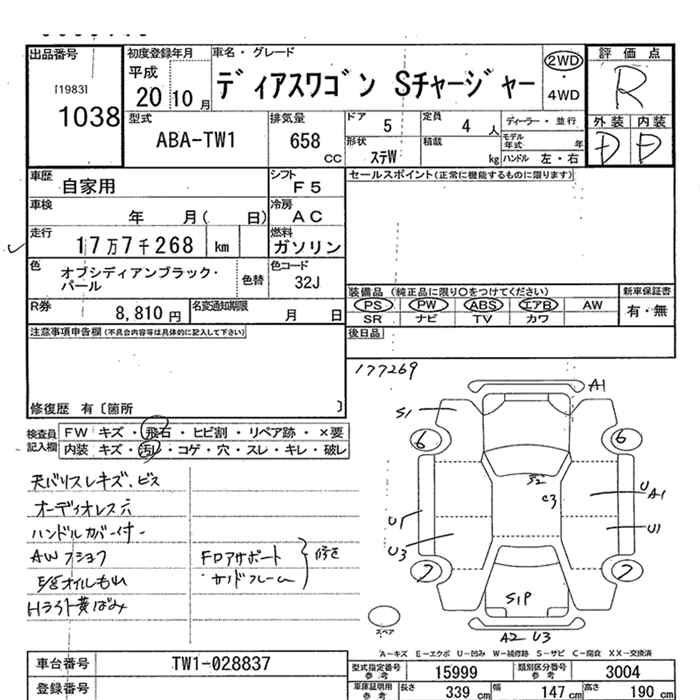 出品番号
[1983]
1038
初度登録年月
平成
20 10 月
車名・グレード
ディアスワゴン Sチャージャー
2WD
・
4WD
評価点
R
外装 内装
D D
型式
ABA-TW1
排気量
658
CC
ドア 5
定員 4 人
ディーラー・並行
形状 ステW
積載 kg
モデル年式 年
ハンドル 左・右
車歴
自家用
シフト
F5
セールスポイント(正常に機能するものに限ります)
車検
年 月( 日)
冷房
AC
走行
17万7千268 km
燃料
ガソリン
色
オブシディアンブラック・パール
色替
色コード
32J
装備品 (純正品に限り○をつけてください)
新車保証書
PS PW ABS エアB AW
有・無
SR ナビ TV カワ
R券
8,810 円
名変通知期限
月 日
後日品
注意事項申告欄(不具合内容等は具体的に記入して下さい)
修復歴 有〔箇所 〕
177269
検査員記入欄
FW キズ・飛石・ヒビ割・リペア跡・×要
内装 キズ・汚れ・コゲ・穴・スレ・キレ・破レ
天バリスレキズ、ビス
オーディオレス穴
ハンドルカバー付
AWフショク
E/Gオイルもれ
Hライト黄ばみ
FDアサポート
サイドフレーム
修正
A1
S1
6 6
S2
C3
U
A1
U1
U1
U3
7 7
S1P
スペア
A2 U3
A−キズ E−エクボ U−凹み W−補修跡 S−サビ C−腐食 XX−交換済
車台番号
TW1-028837
登録番号
型式指定番号参考
15999
類別区分番号参考
3004
車庫証明用参考
長さ 339 cm
幅 147 cm
高さ 190 cm